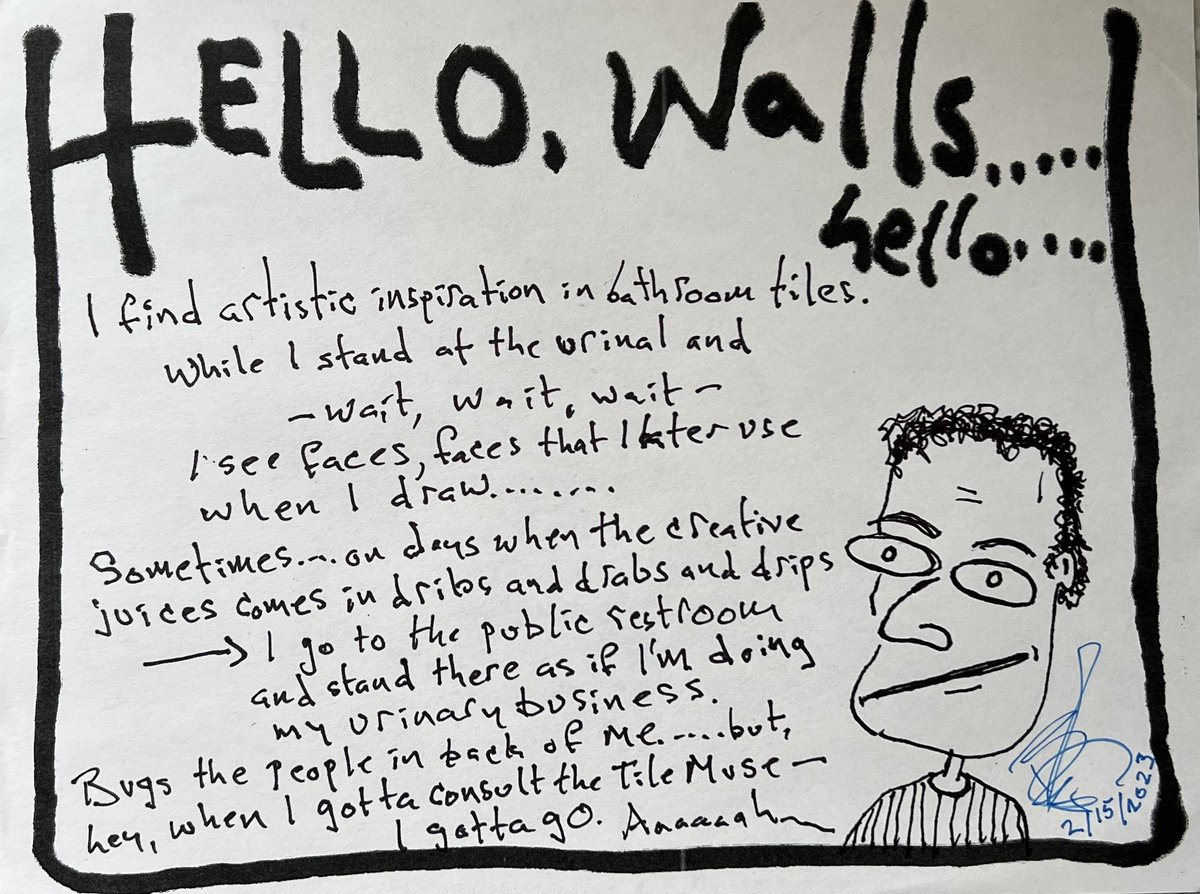 HELLO, Walls.....
hello.....
I find artistic inspiration in bathroom tiles.
While I stand at the urinal and
- wait, wait, wait -
I see faces, faces that I later use
when I draw.........
Sometimes....on days when the creative
juices comes in dribs and drabs and drips
→ I go to the public restroom
and stand there as if I'm doing
my urinary business.
Bugs the people in back of me......but,
hey, when I gotta consult the Tile Muse -
I gotta go. Aaaaaahm
2/15/2023